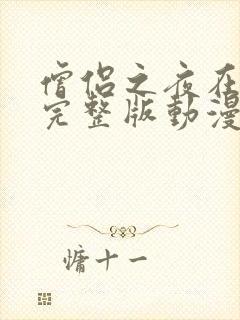 僧侣之夜在
完整版動漫
慵十一